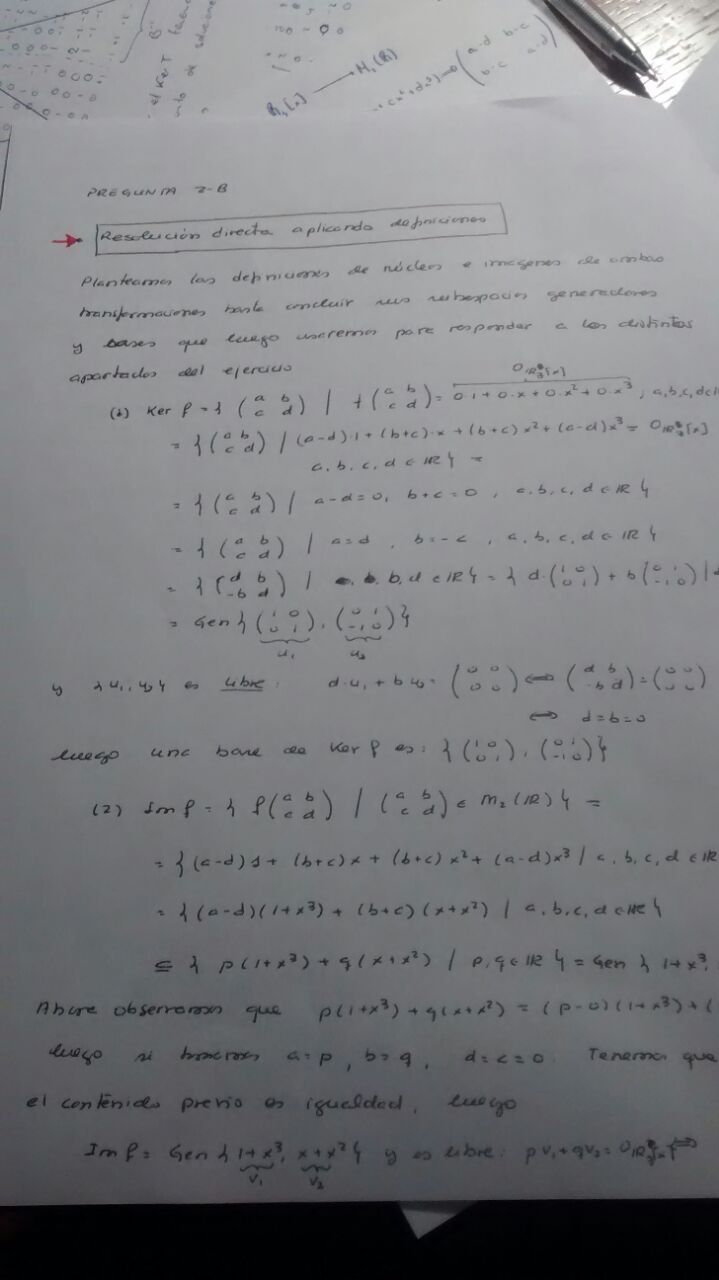 el Ker T
R₃[x] ⟶ M₂(R)
+ cx²+dx³) = (a-d b-c
b-c a-d)
PREGUNTA 2-B
Resolución directa aplicando definiciones
Planteamos las definiciones de núcleos e imágenes de ambas
transformaciones hasta concluir sus subespacios generadores
y bases que luego usaremos para responder a los distintos
apartados del ejercicio
(1) Ker f = { (a b / c d) | f(a b / c d) = 0·1+0·x+0·x²+0·x³ , a,b,c,d∈
= { (a b / c d) / (a-d)·1+(b+c)·x+(b+c)x²+(a-d)x³ = 0
a, b, c, d ∈ IR } =
= { (a b / c d) / a-d=0, b+c=0 , a,b,c,d ∈ IR }
= { (a b / c d) / a=d , b=-c , a,b,c,d ∈ IR }
= { (d b / -b d) / b, d ∈ IR } = { d·(1 0 / 0 1) + b(0 1 / -1 0) |
= Gen { (1 0 / 0 1), (0 1 / -1 0) }
u₁ u₂
y {u₁, u₂} es libre: d·u₁ + b u₂ = (0 0 / 0 0) ⟺ (d b / -b d) = (0 0 / 0 0)
⟺ d=b=0
luego una base de Ker f es: { (1 0 / 0 1), (0 1 / -1 0) }
(2) Im f = { f(a b / c d) / (a b / c d) ∈ M₂(IR) } =
= { (a-d)1 + (b+c)x + (b+c)x² + (a-d)x³ / a, b, c, d ∈ IR
= { (a-d)(1+x³) + (b+c)(x+x²) / a,b,c,d ∈ IR }
⊆ { p(1+x³) + q(x+x²) / p,q ∈ IR } = Gen { 1+x³,
Ahora observamos que p(1+x³)+q(x+x²) = (p-0)(1+x³)+(
luego si hacemos a=p, b=q, d=c=0. Tenemos que
el contenido previo es igualdad, luego
Im f = Gen { 1+x³, x+x² } y es libre: pv₁+qv₂ = 0 ⟺
v₁ v₂